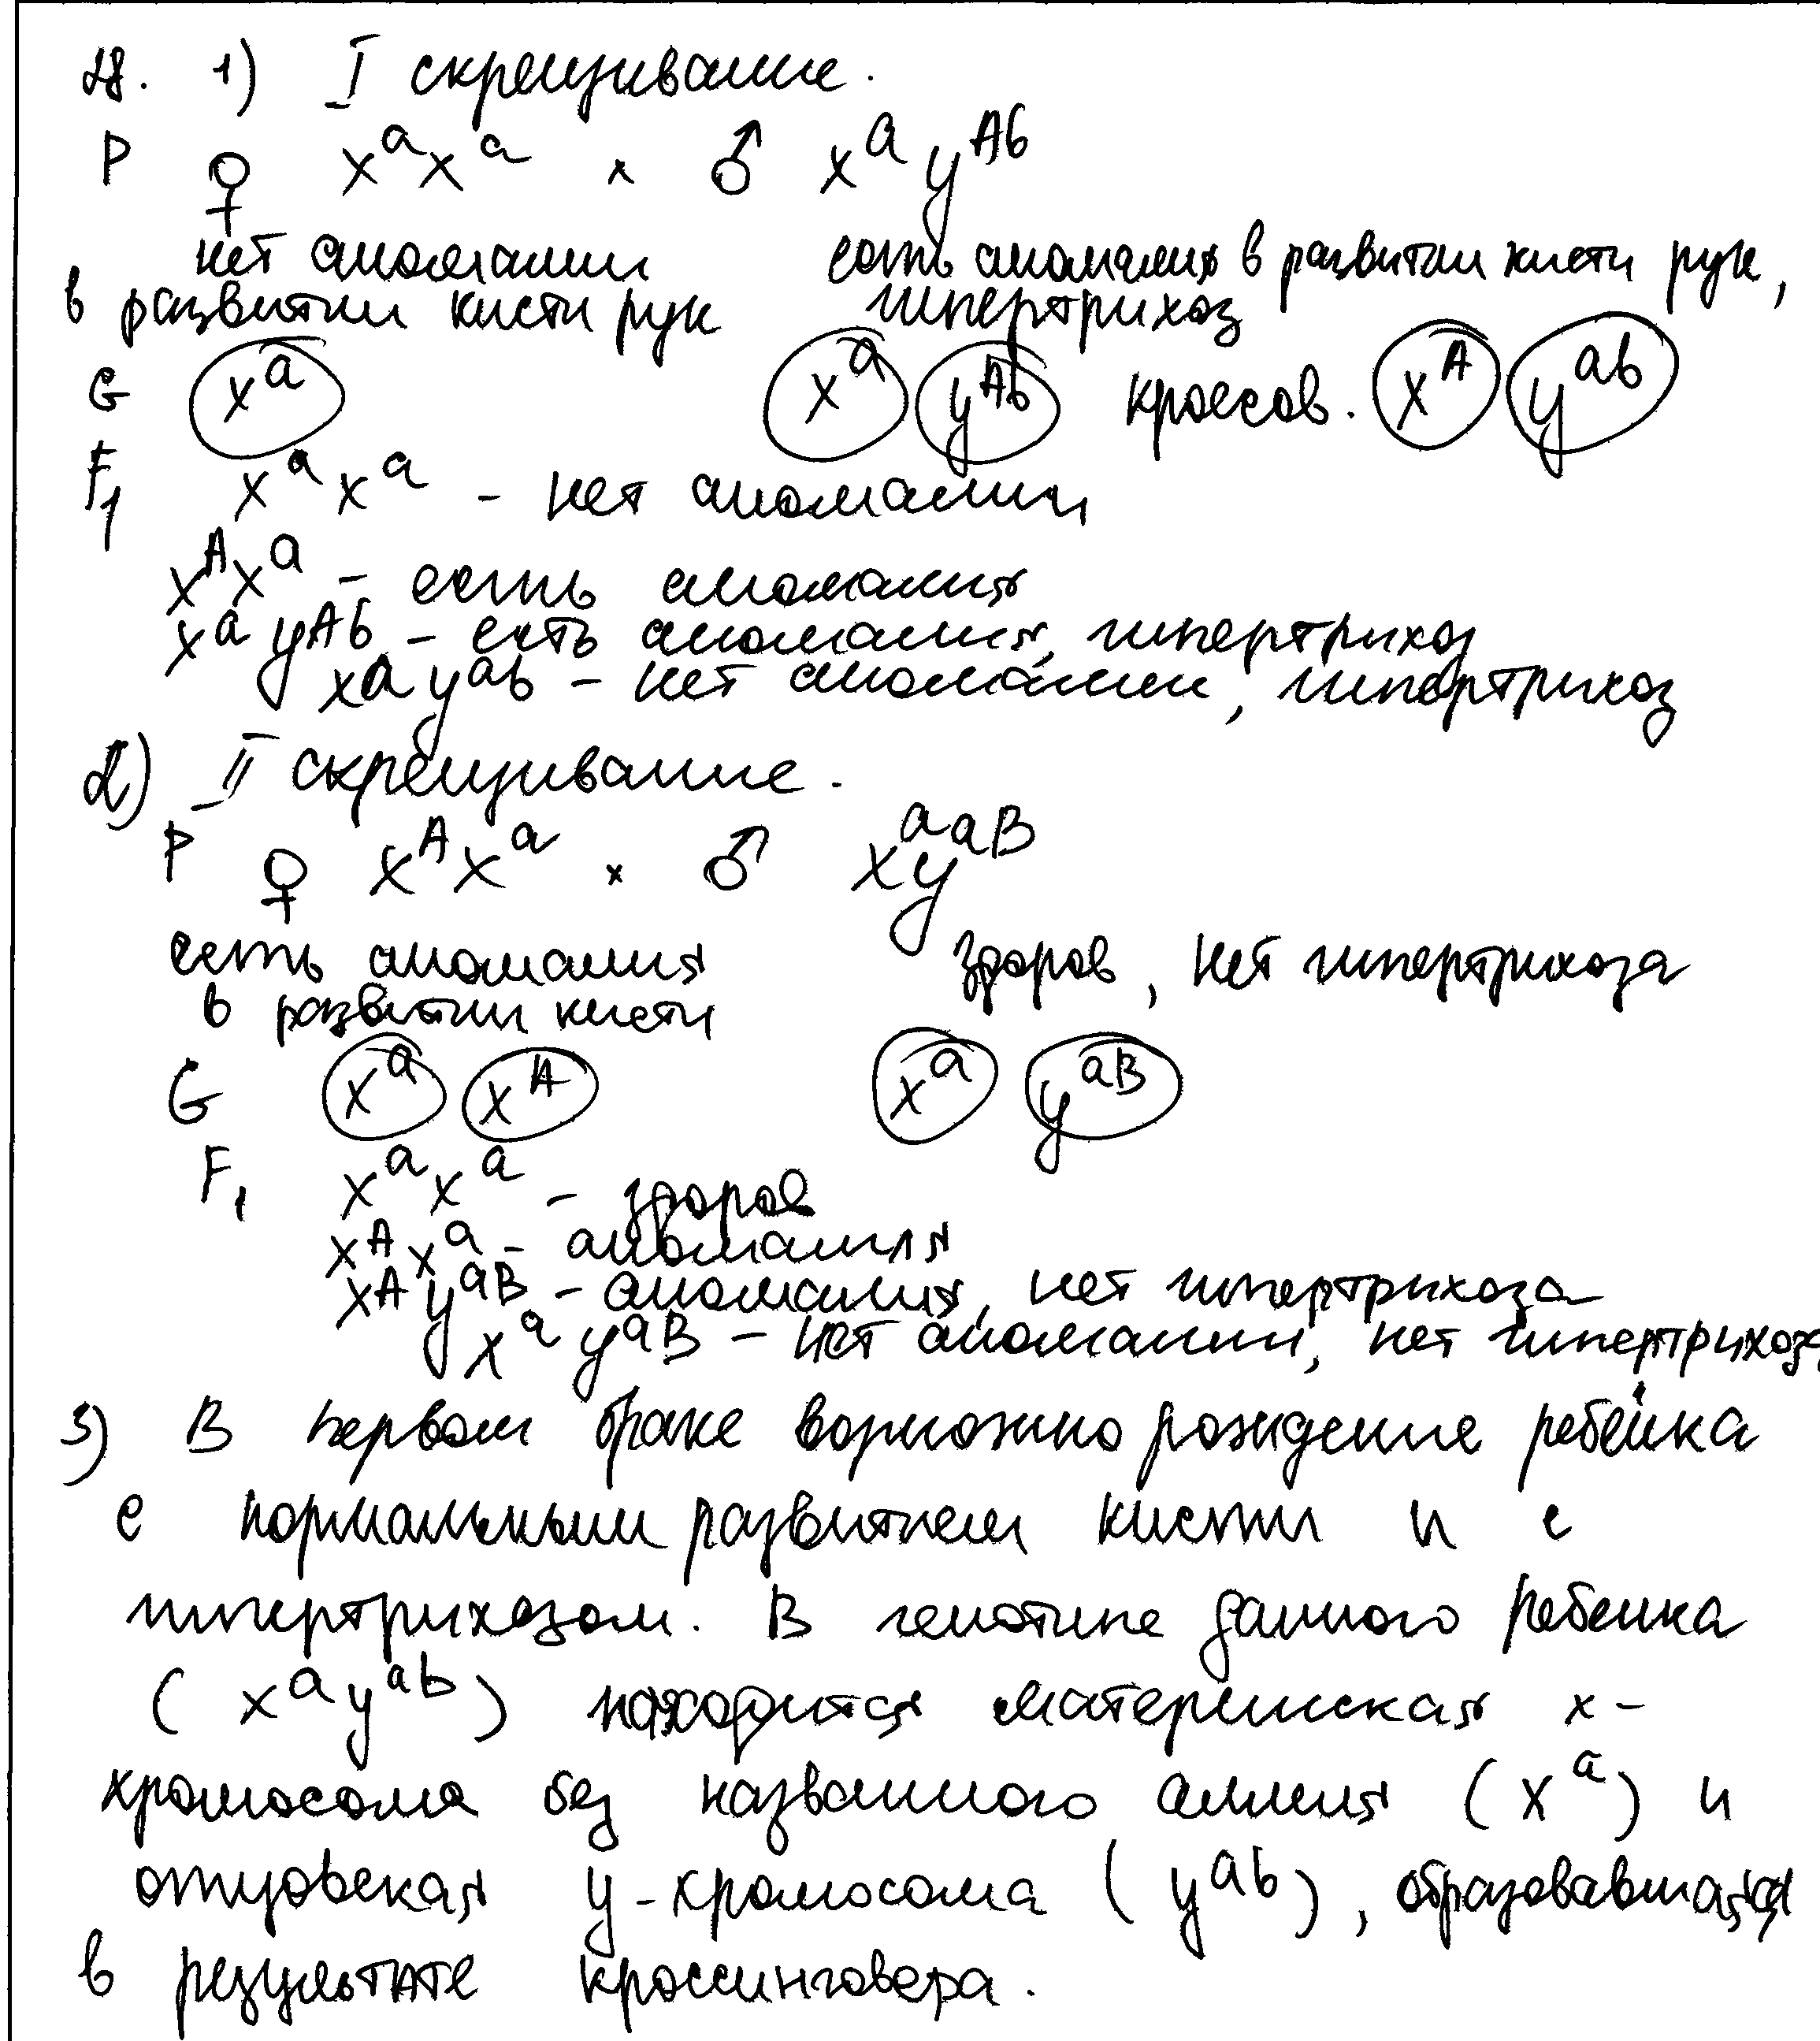 28. 1) I скрещивание.
P ♀ XᵃXᵃ × ♂ Xᵃ Yᴬᵇ
нет аномалии есть аномалия в развитии кисти рук,
в развитии кисти рук гипертрихоз
G Xᵃ Xᵃ Yᴬᵇ кроссов. Xᴬ Yᵃᵇ
F₁ Xᵃ Xᵃ - нет аномалии
XᴬXᵃ - есть аномалия
Xᵃ Yᴬᵇ - есть аномалия, гипертрихоз
Xᵃ Yᵃᵇ - нет аномалии, гипертрихоз
2) II скрещивание.
P ♀ XᴬXᵃ × ♂ XᵃYᵃᴮ
есть аномалия здоров, нет гипертрихоза
в развитии кисти
G Xᵃ Xᴬ Xᵃ Yᵃᴮ
F₁ XᵃXᵃ - здоров
XᴬXᵃ - аномалия
Xᴬ Yᵃᴮ - аномалия, нет гипертрихоза
Xᵃ Yᵃᴮ - нет аномалии, нет гипертрихоза
3) В первом браке возможно рождение ребёнка
с нормальным развитием кисти и с
гипертрихозом. В генотипе данного ребенка
(XᵃYᵃᵇ) находится материнская х-
хромосома без названного аллеля (Xᵃ) и
отцовская У-хромосома (Yᵃᵇ), образовавшаяся
в результате кроссинговера.